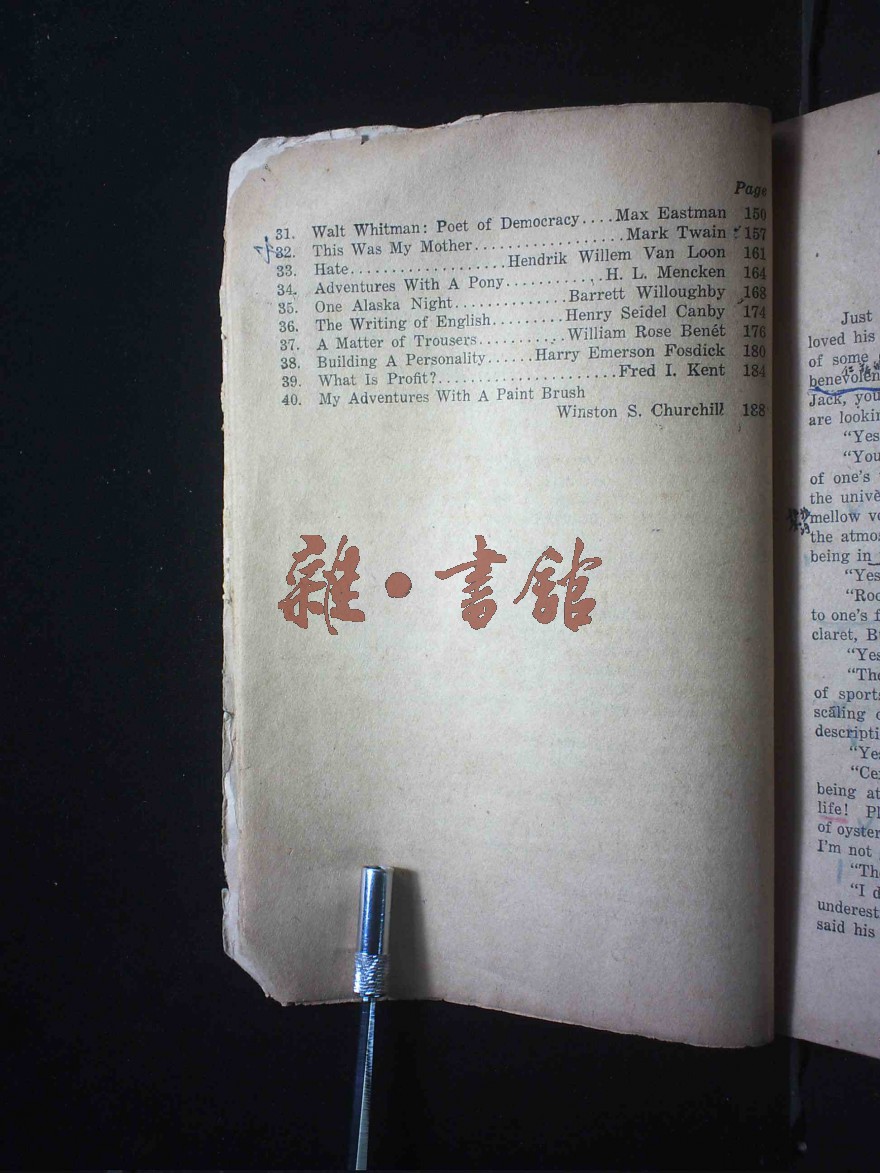 Page
31. Walt Whitman: Poet of Democracy....Max Eastman 150
32. This Was My Mother.................Mark Twain 157
33. Hate..................Hendrik Willem Van Loon 161
34. Adventures With A Pony...........H. L. Mencken 164
35. One Alaska Night..............Barrett Willoughby 168
36. The Writing of English.........Henry Seidel Canby 174
37. A Matter of Trousers...........William Rose Benét 176
38. Building A Personality......Harry Emerson Fosdick 180
39. What Is Profit?......................Fred I. Kent 184
40. My Adventures With A Paint Brush
Winston S. Churchill 188
雜·書館
Just
loved his
of some
benevolen
Jack, you
are lookin
"Yes
"You
of one's
the unive
mellow vo
the atmos
being in
"Yes
"Roc
to one's f
claret, B
"Yes
"The
of sports
scaling
descripti
"Yes
"Cer
being at
life! Pl
of oyster
I'm not
"Th
"I d
underest
said his